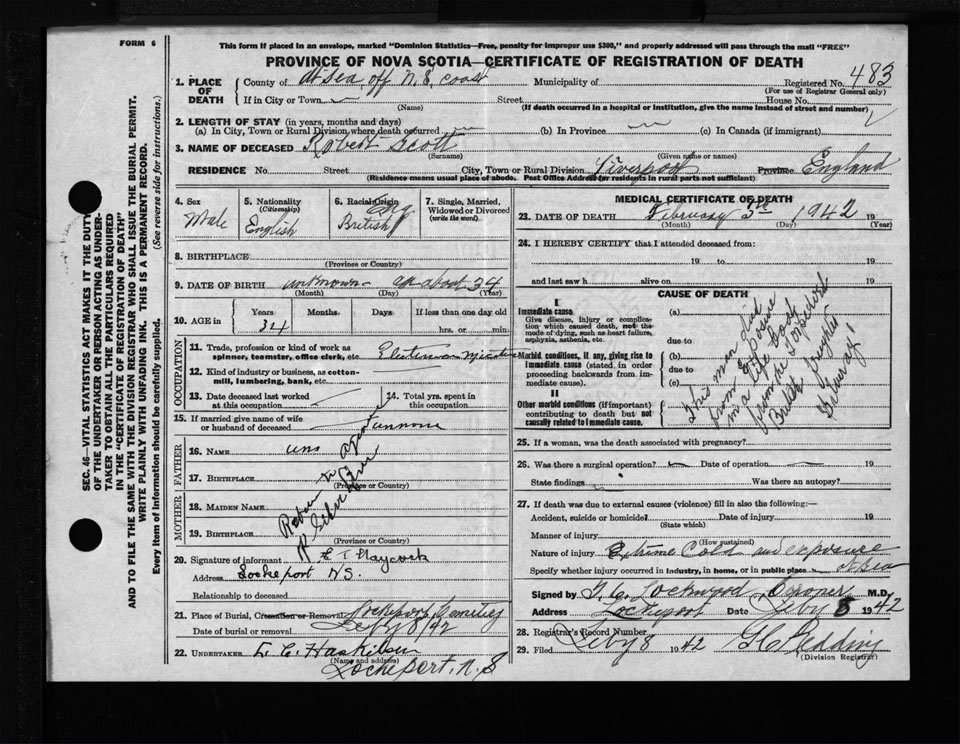 FORM 6
This form if placed in an envelope, marked "Dominion Statistics—Free, penalty for improper use $300," and properly addressed will pass through the mail "FREE"
PROVINCE OF NOVA SCOTIA—CERTIFICATE OF REGISTRATION OF DEATH
SEC. 46—VITAL STATISTICS ACT MAKES IT THE DUTY
OF THE UNDERTAKER OR PERSON ACTING AS UNDER-
TAKER TO OBTAIN ALL THE PARTICULARS REQUIRED
IN THE "CERTIFICATE OF REGISTRATION OF DEATH"
AND TO FILE THE SAME WITH THE DIVISION REGISTRAR WHO SHALL ISSUE THE BURIAL PERMIT.
WRITE PLAINLY WITH UNFADING INK. THIS IS A PERMANENT RECORD.
Every item of Information should be carefully supplied. (See reverse side for instructions.)
1. PLACE OF DEATH County of At Sea, off N.S. coast Municipality of Registered No. 483
(For use of Registrar General only)
If in City or Town Street House No.
(Name) (If death occurred in a hospital or institution, give the name instead of street and number)
2. LENGTH OF STAY (in years, months and days)
(a) In City, Town or Rural Division where death occurred (b) In Province (c) In Canada (if immigrant)
3. NAME OF DECEASED Robert Scott
(Surname) (Given name or names)
RESIDENCE No. Street City, Town or Rural Division Liverpool Province England
(Residence means usual place of abode. Post Office Address for residents in rural parts not sufficient)
4. Sex
Male
5. Nationality
(Citizenship)
English
6. Racial Origin
Eng
British
7. Single, Married,
Widowed or Divorced
(write the word)
8. BIRTHPLACE
(Province or Country)
9. DATE OF BIRTH unknown about 34
(Month) (Day) (Year)
10. AGE in Years Months Days If less than one day old
34 hrs. or min.
OCCUPATION
11. Trade, profession or kind of work as
spinner, teamster, office clerk, etc.
12. Kind of industry or business, as cotton-
mill, lumbering, bank, etc.
13. Date deceased last worked
at this occupation
14. Total yrs. spent in
this occupation
15. If married give name of wife
or husband of deceased
FATHER
16. NAME
17. BIRTHPLACE
(Province or Country)
MOTHER
18. MAIDEN NAME
19. BIRTHPLACE
(Province or Country)
20. Signature of informant Haycock
Address Lockeport N.S.
Relationship to deceased
21. Place of Burial, Cremation or Removal Lockeport Cemetery
Date of burial or removal Feby 8/42
22. UNDERTAKER
(Name and address)
Lockeport, N.S
MEDICAL CERTIFICATE OF DEATH
23. DATE OF DEATH February 5th 1942 19
(Month) (Day) (Year)
24. I HEREBY CERTIFY that I attended deceased from:
19 to 19
and last saw h alive on 19
CAUSE OF DEATH
I
Immediate cause.
Give disease, injury or complica-
tion which caused death, not the
mode of dying, such as heart failure,
asphyxia, asthenia, etc.
Morbid conditions, if any, giving rise to
immediate cause (stated in order
proceeding backwards from im-
mediate cause).
II
Other morbid conditions (if important)
contributing to death but not
causally related to immediate cause.
(a)
due to
(b)
due to
(c)
This man died
from Exposure
in a life Boat
from the Torpedoed
British freighter
25. If a woman, was the death associated with pregnancy?
26. Was there a surgical operation? Date of operation 19
State findings Was there an autopsy?
27. If death was due to external causes (violence) fill in also the following:—
Accident, suicide or homicide? Date of injury 19
(State which)
Manner of injury
(How sustained)
Nature of injury Extreme Cold and exposure
Specify whether injury occurred in industry, in home, or in public place At Sea
Signed by Lockwood Coroner M.D.
Address Lockeport Date Feby 8 1942
28. Registrar's Record Number
29. Filed Feby 8 1942
(Division Registrar)